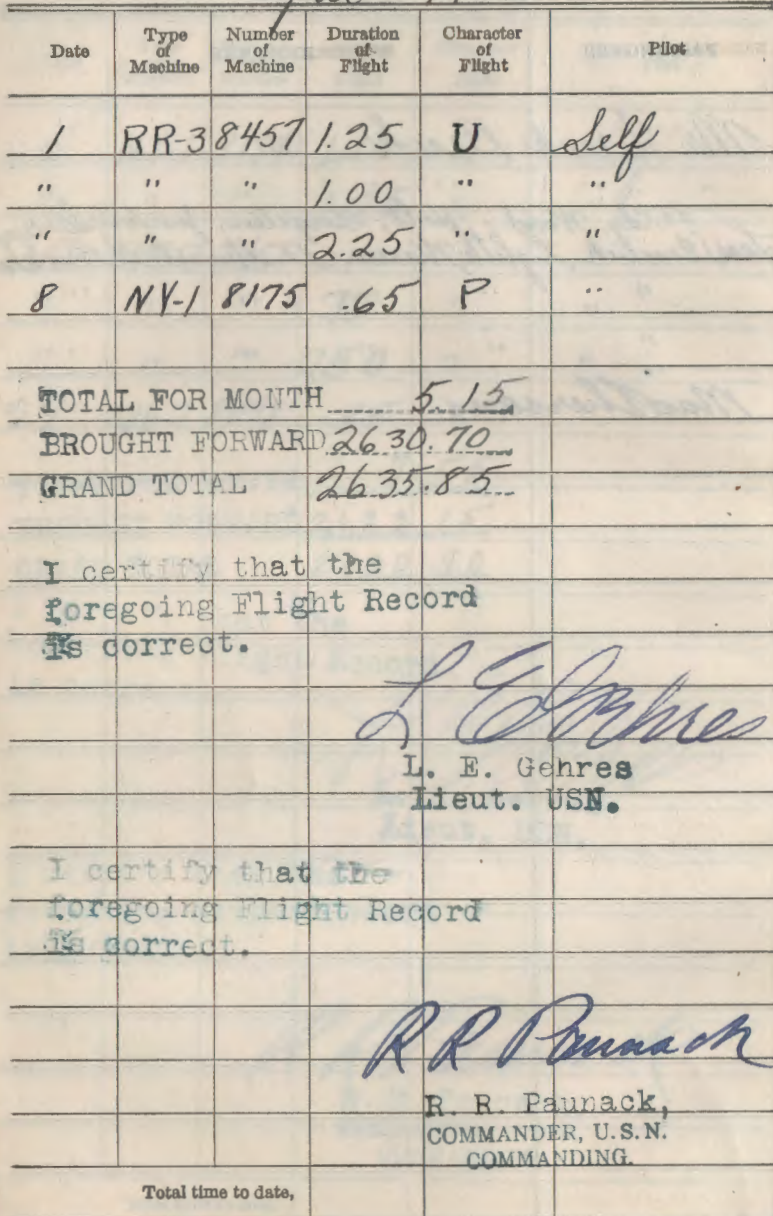 Date Type of Machine Number of Machine Duration of Flight Character of Flight Pilot
1 RR-3 8457 1.25 U Self
" " " 1.00 " "
" " " 2.25 " "
8 NY-1 8175 .65 P "
TOTAL FOR MONTH 5.15
BROUGHT FORWARD 2630.70
GRAND TOTAL 2635.85
I certify that the
foregoing Flight Record
is correct.
L E Gehres
L. E. Gehres
Lieut. USN.
I certify that the
foregoing Flight Record
is correct.
R R Paunack
R. R. Paunack,
COMMANDER, U.S.N.
COMMANDING.
Total time to date,